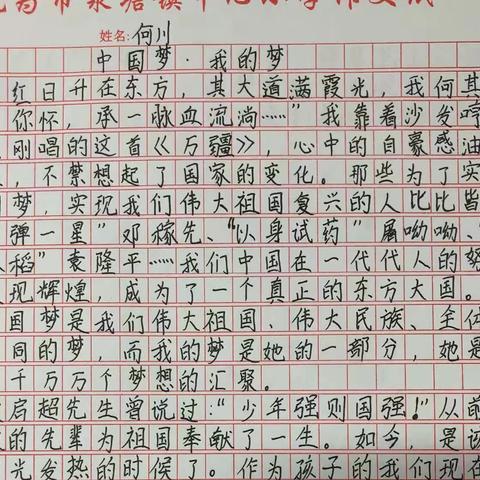 姓名:何川
中国梦·我的梦
红日升在东方,其大道满霞光,我何其
你怀,承一脉血流淌……”我靠着沙发哼
刚唱的这首《万疆》,心中的自豪感油
,不禁想起了国家的变化。那些为了实
梦,实现我们伟大祖国复兴的人比比皆
弹一星”邓稼先、“以身试药”屠呦呦、
稻”袁隆平……我们中国在一代代人的努
现辉煌,成为了一个真正的东方大国。
国梦是我们伟大祖国、伟大民族、全位
同的梦,而我的梦是她的一部分,她是
千万万个梦想的汇聚。
启超先生曾说过:“少年强则国强!”从前
的先辈为祖国奉献了一生。如今,是该
光发热的时候了。作为孩子的我们现在